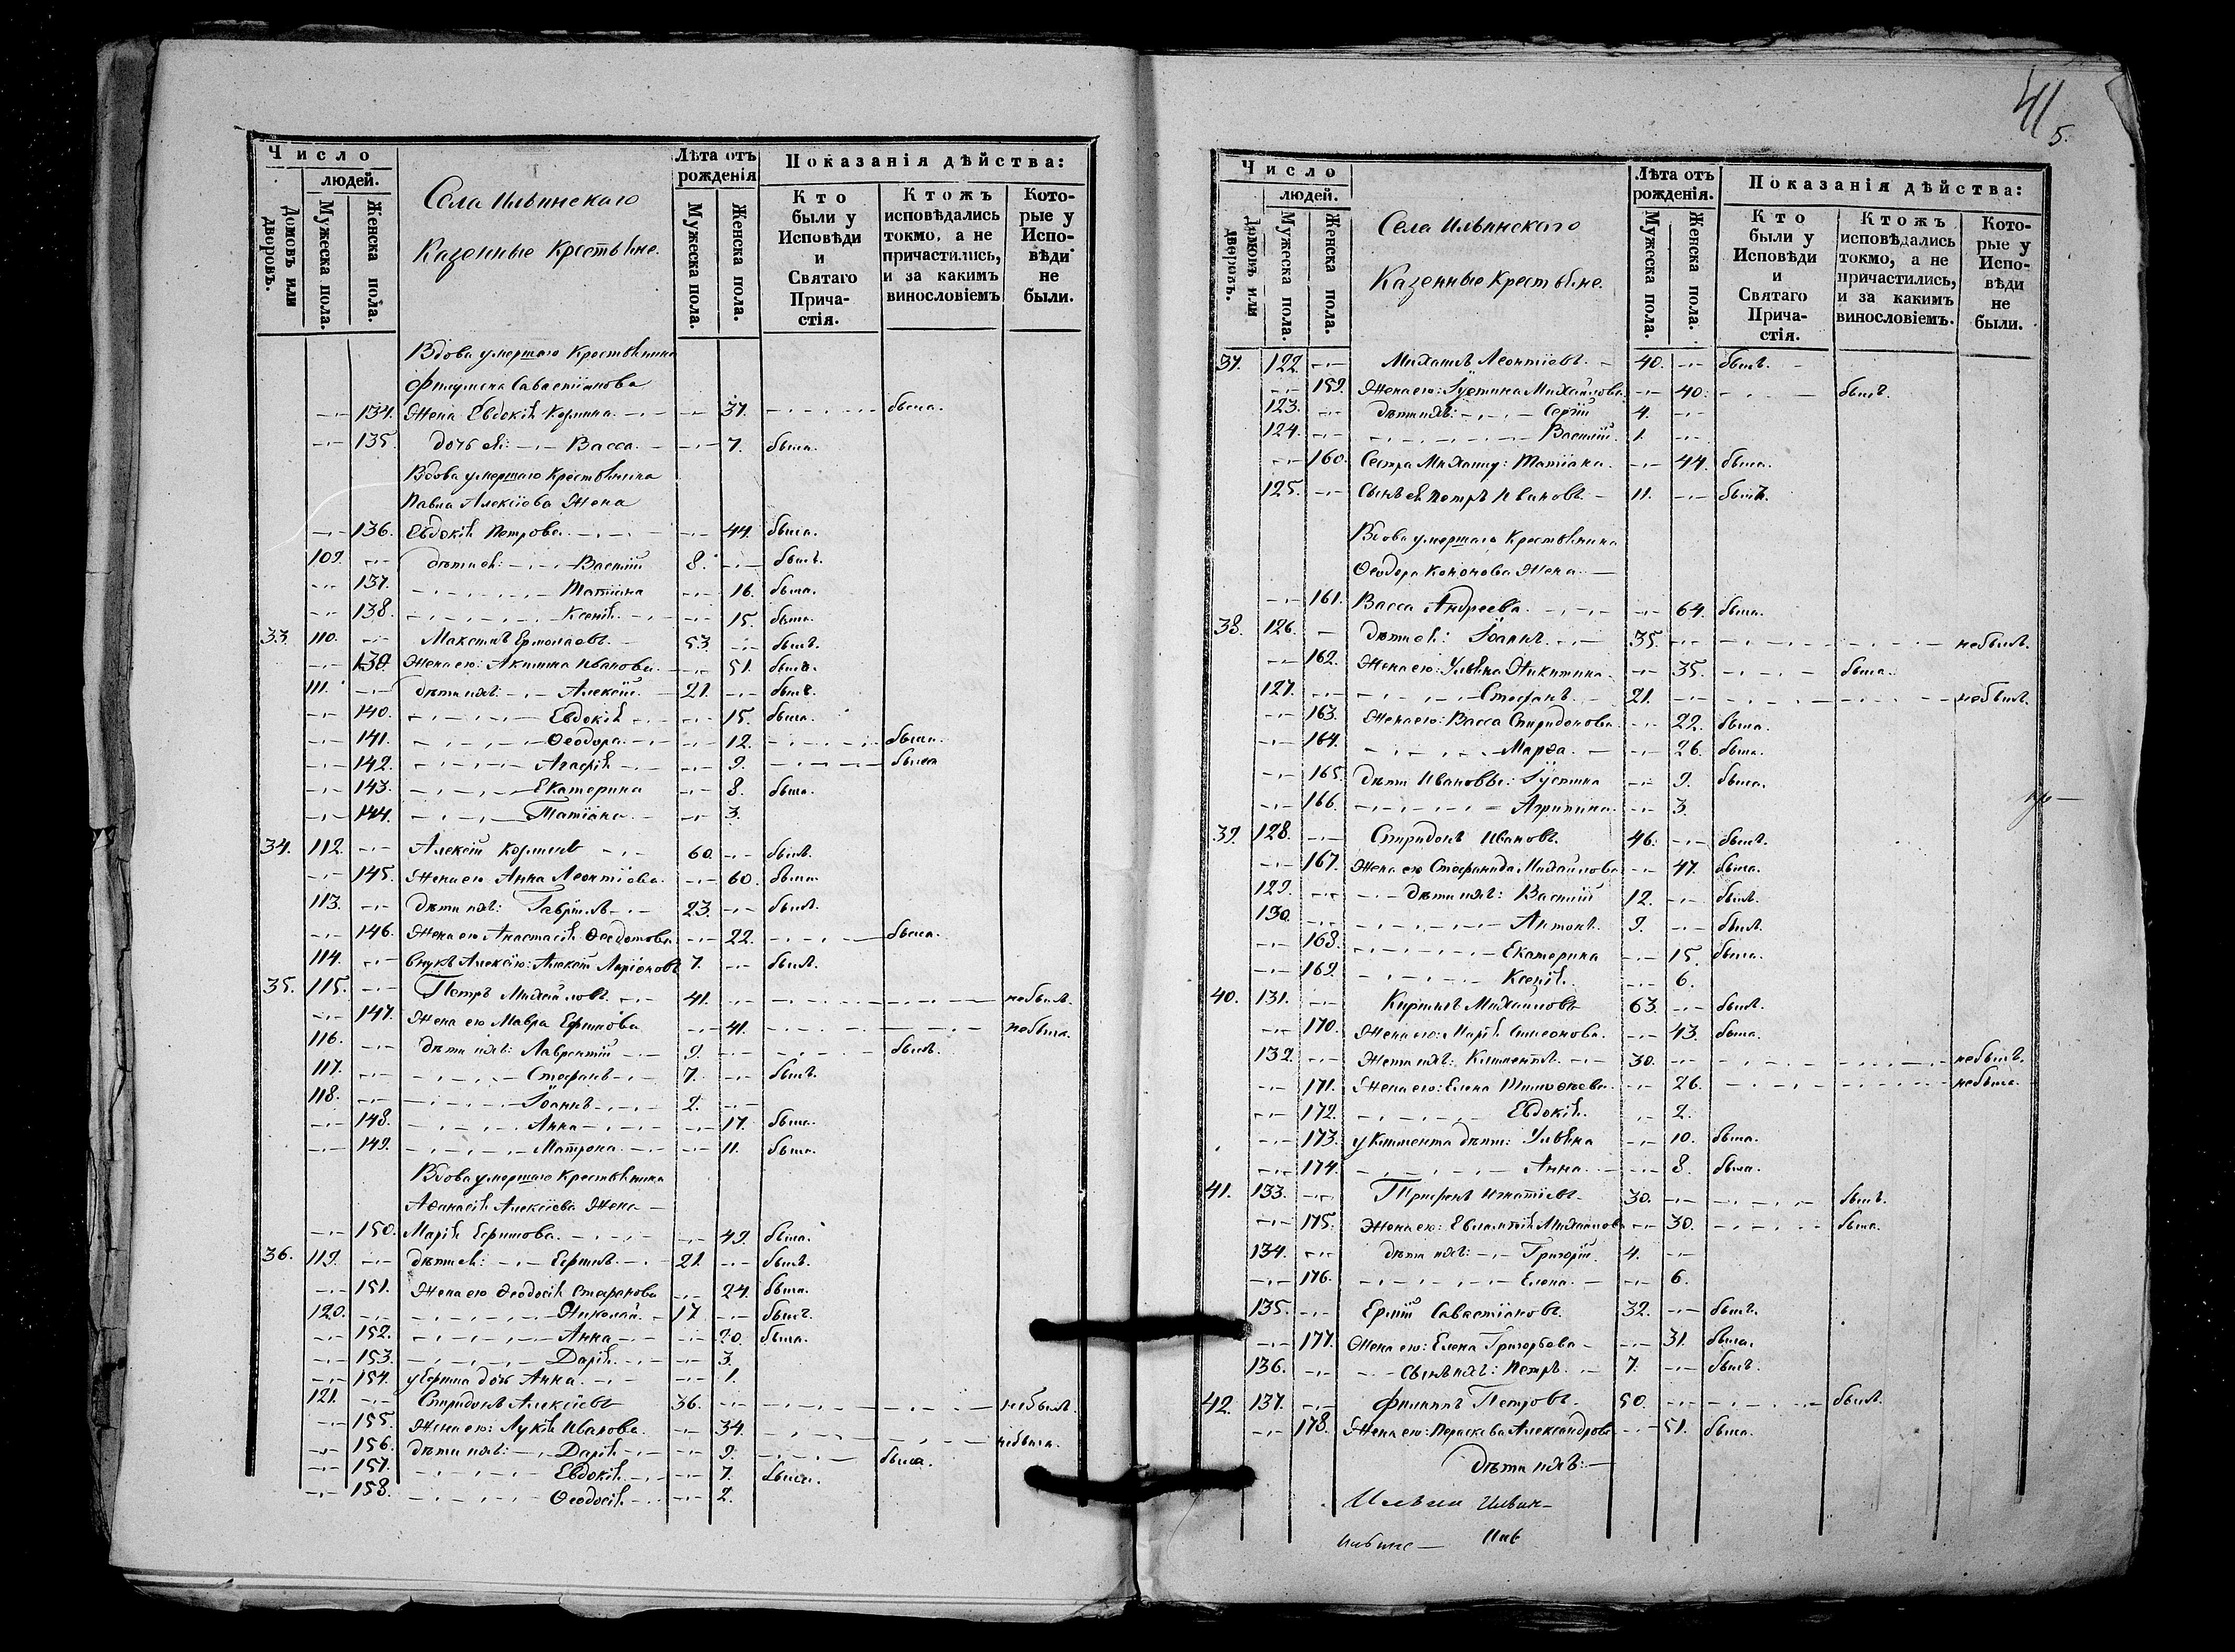 Число
людей.
Домовъ или дворовъ.
Мужеска пола.
Женска пола.
Села Ильинскаго
Казенные Крестьяне.
Лѣта отъ рожденія
Мужеска пола.
Женска пола.
Показанія дѣйства:
Кто были у Исповѣди и Святаго Причастія.
Ктожъ исповѣдались токмо, а не причастились, и за какимъ винословіемъ
Которые у Исповѣди не были.
Вдова умершаго Крестьянина
Савастіянова
134. Жена Евдокія 37. была.
135. дочь ея: Васса. 7. была.
Вдова умершаго Крестьянина
Павла Алексіева Жена
136. Евдокія Петрова. 44. была.
109. дѣти ея: Василій 8. былъ.
137. Татіана 16. была.
138. Ксенія 15. была.
33. 110. Максимъ Ермолаевъ. 53. былъ.
139. Жена его: Акилина Иванова. 51. была.
111. дѣти ихъ: Алексій. 21. былъ.
140. Евдокія 15. была.
141. Ѳеодора. 12. была.
142. Агафія 9. была
143. Екатерина 8. была.
144. Татіана. 3.
34. 112. Алексій 60. былъ.
145. Жена его Анна Леонтіева. 60. была.
113. дѣти ихъ: Гавріилъ 23. былъ.
146. Жена его Анастасія Ѳедотова. 22. была.
114. Внукъ Алексію: Алексій Ларіоновъ 7. былъ.
35. 115. Петръ Михайловъ. 41. небылъ.
147. Жена его Мавра Ефимова 41. небыла.
116. дѣти ихъ: Лаврентій 9. былъ.
117. Стефанъ 7. былъ.
118. Іоаннъ 2.
148. Анна 17. была.
149. Матрона. 11. была.
Вдова умершаго Крестьянина
Аѳанасія Алексіева Жена
150. Марія Ефимова. 49. была.
36. 119. дѣти ея: Ефимъ. 21. былъ.
151. Жена его Ѳеодосія Стефанова 24. была.
120. Николай. 17 былъ.
152. Анна 20. была.
153. Дарія. 3.
154. у Ефима дочь Анна. 1.
121. Спиридонъ Алексіевъ 36. небылъ.
155. Жена его: Лукія Иванова. 34. небыла.
156. дѣти ихъ: Дарія 9. была.
157. Евдокія. 7. была.
158. Ѳеодосія. 2.
41
5.
Число
людей.
Домовъ или дворовъ.
Мужеска пола.
Женска пола.
Села Ильинскаго
Казенные Крестьяне.
Лѣта отъ рожденія.
Мужеска пола.
Женска пола.
Показанія дѣйства:
Кто были у Исповѣди и Святаго Причастія.
Ктожъ исповѣдались токмо, а не причастились, и за какимъ винословіемъ.
Которые у Исповѣди не были.
37. 122. Михаилъ Леонтіевъ. 40. былъ.
159. Жена его: Іустина Михайлова. 40. была.
123. дѣти ихъ: Сергій 4.
124. Василій. 1.
160. Сестра Михаилу: Татіана. 44. была.
125. Сынъ ея Петръ Ивановъ 11. былъ.
Вдова умершаго Крестьянина
Ѳеодора Кононова Жена
161. Васса Андреева. 64. была.
38. 126. дѣти ея: Іоаннъ 35. небылъ.
162. Жена его: Ульяна Никитина. 35. была.
127. Стефанъ 21. небылъ.
163. Жена его: Васса Спиридонова. 22. была.
164. Марѳа. 26. была.
165. дѣти Ивановы: Іустина 9. была.
166. Агрипина. 3.
39. 128. Спиридонъ Ивановъ. 46. былъ.
167. Жена его Стефанида Михайлова 47. была.
129. дѣти ихъ: Василій 12. былъ.
130. Антонъ. 9. былъ.
168. Екатерина 15. была.
169. Ксенія. 6.
40. 131. Кирилъ Михайловъ 63. былъ.
170. Жена его: Марія Симеонова. 43. была.
132. ихъ: Климентъ. 30. небылъ.
171. Жена его: Елена Тимоѳеева. 26. небыла.
172. Евдокія. 2.
173. у Климента дѣти: Ульяна 10. была.
174. Анна. 8. была.
41. 133. Трифонъ Игнатіевъ 30. былъ.
175. Жена его: Евлампія Михайлова 30. была.
134. дѣти ихъ: Григорій. 4.
176. Елена. 6.
135. Савастіановъ. 32. былъ.
177. Жена его: Елена Григорьева 31. была.
136. Сынъ ихъ: Петръ. 7. былъ.
42. 137. Филиппъ Петровъ. 50. былъ.
178. Жена его: Параскева Александрова 51. была.
дѣти ихъ: